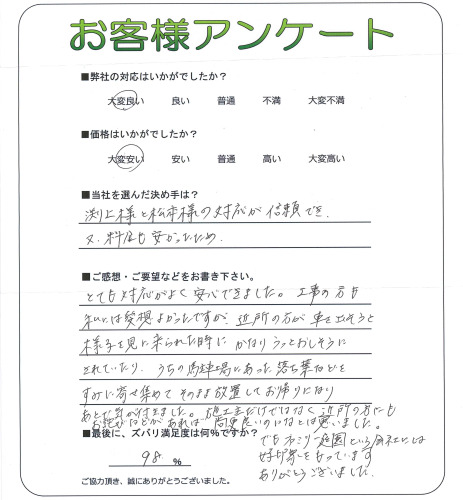 お客様アンケート
■弊社の対応はいかがでしたか？
大変良い 良い 普通 不満 大変不満
■価格はいかがでしたか？
大変安い 安い 普通 高い 大変高い
■当社を選んだ決め手は？
渕上様と松本様の対応が信頼でき、
又、料金も安かったため。
■ご感想・ご要望などをお書き下さい。
とても対応がよく安心できました。工事の方も
私には愛想よかったですが、近所の方が車を出そうと
様子を見に来られた時にかなりうっとおしそうに
されていたり、うちの駐車場にあった落ち葉などを
すみに寄せ集めてそのまま放置してお帰りになり
あとで気が付きました。施工主だけではなく近所の方にも
お詫びなどがあれば、尚更良いのになとは思いました。
■最後に、ズバリ満足度は何％ですか？
でもファミリー庭園という会社には
好印象をもっています
ありがとうございました。
98 ％
ご協力頂き、誠にありがとうございました。